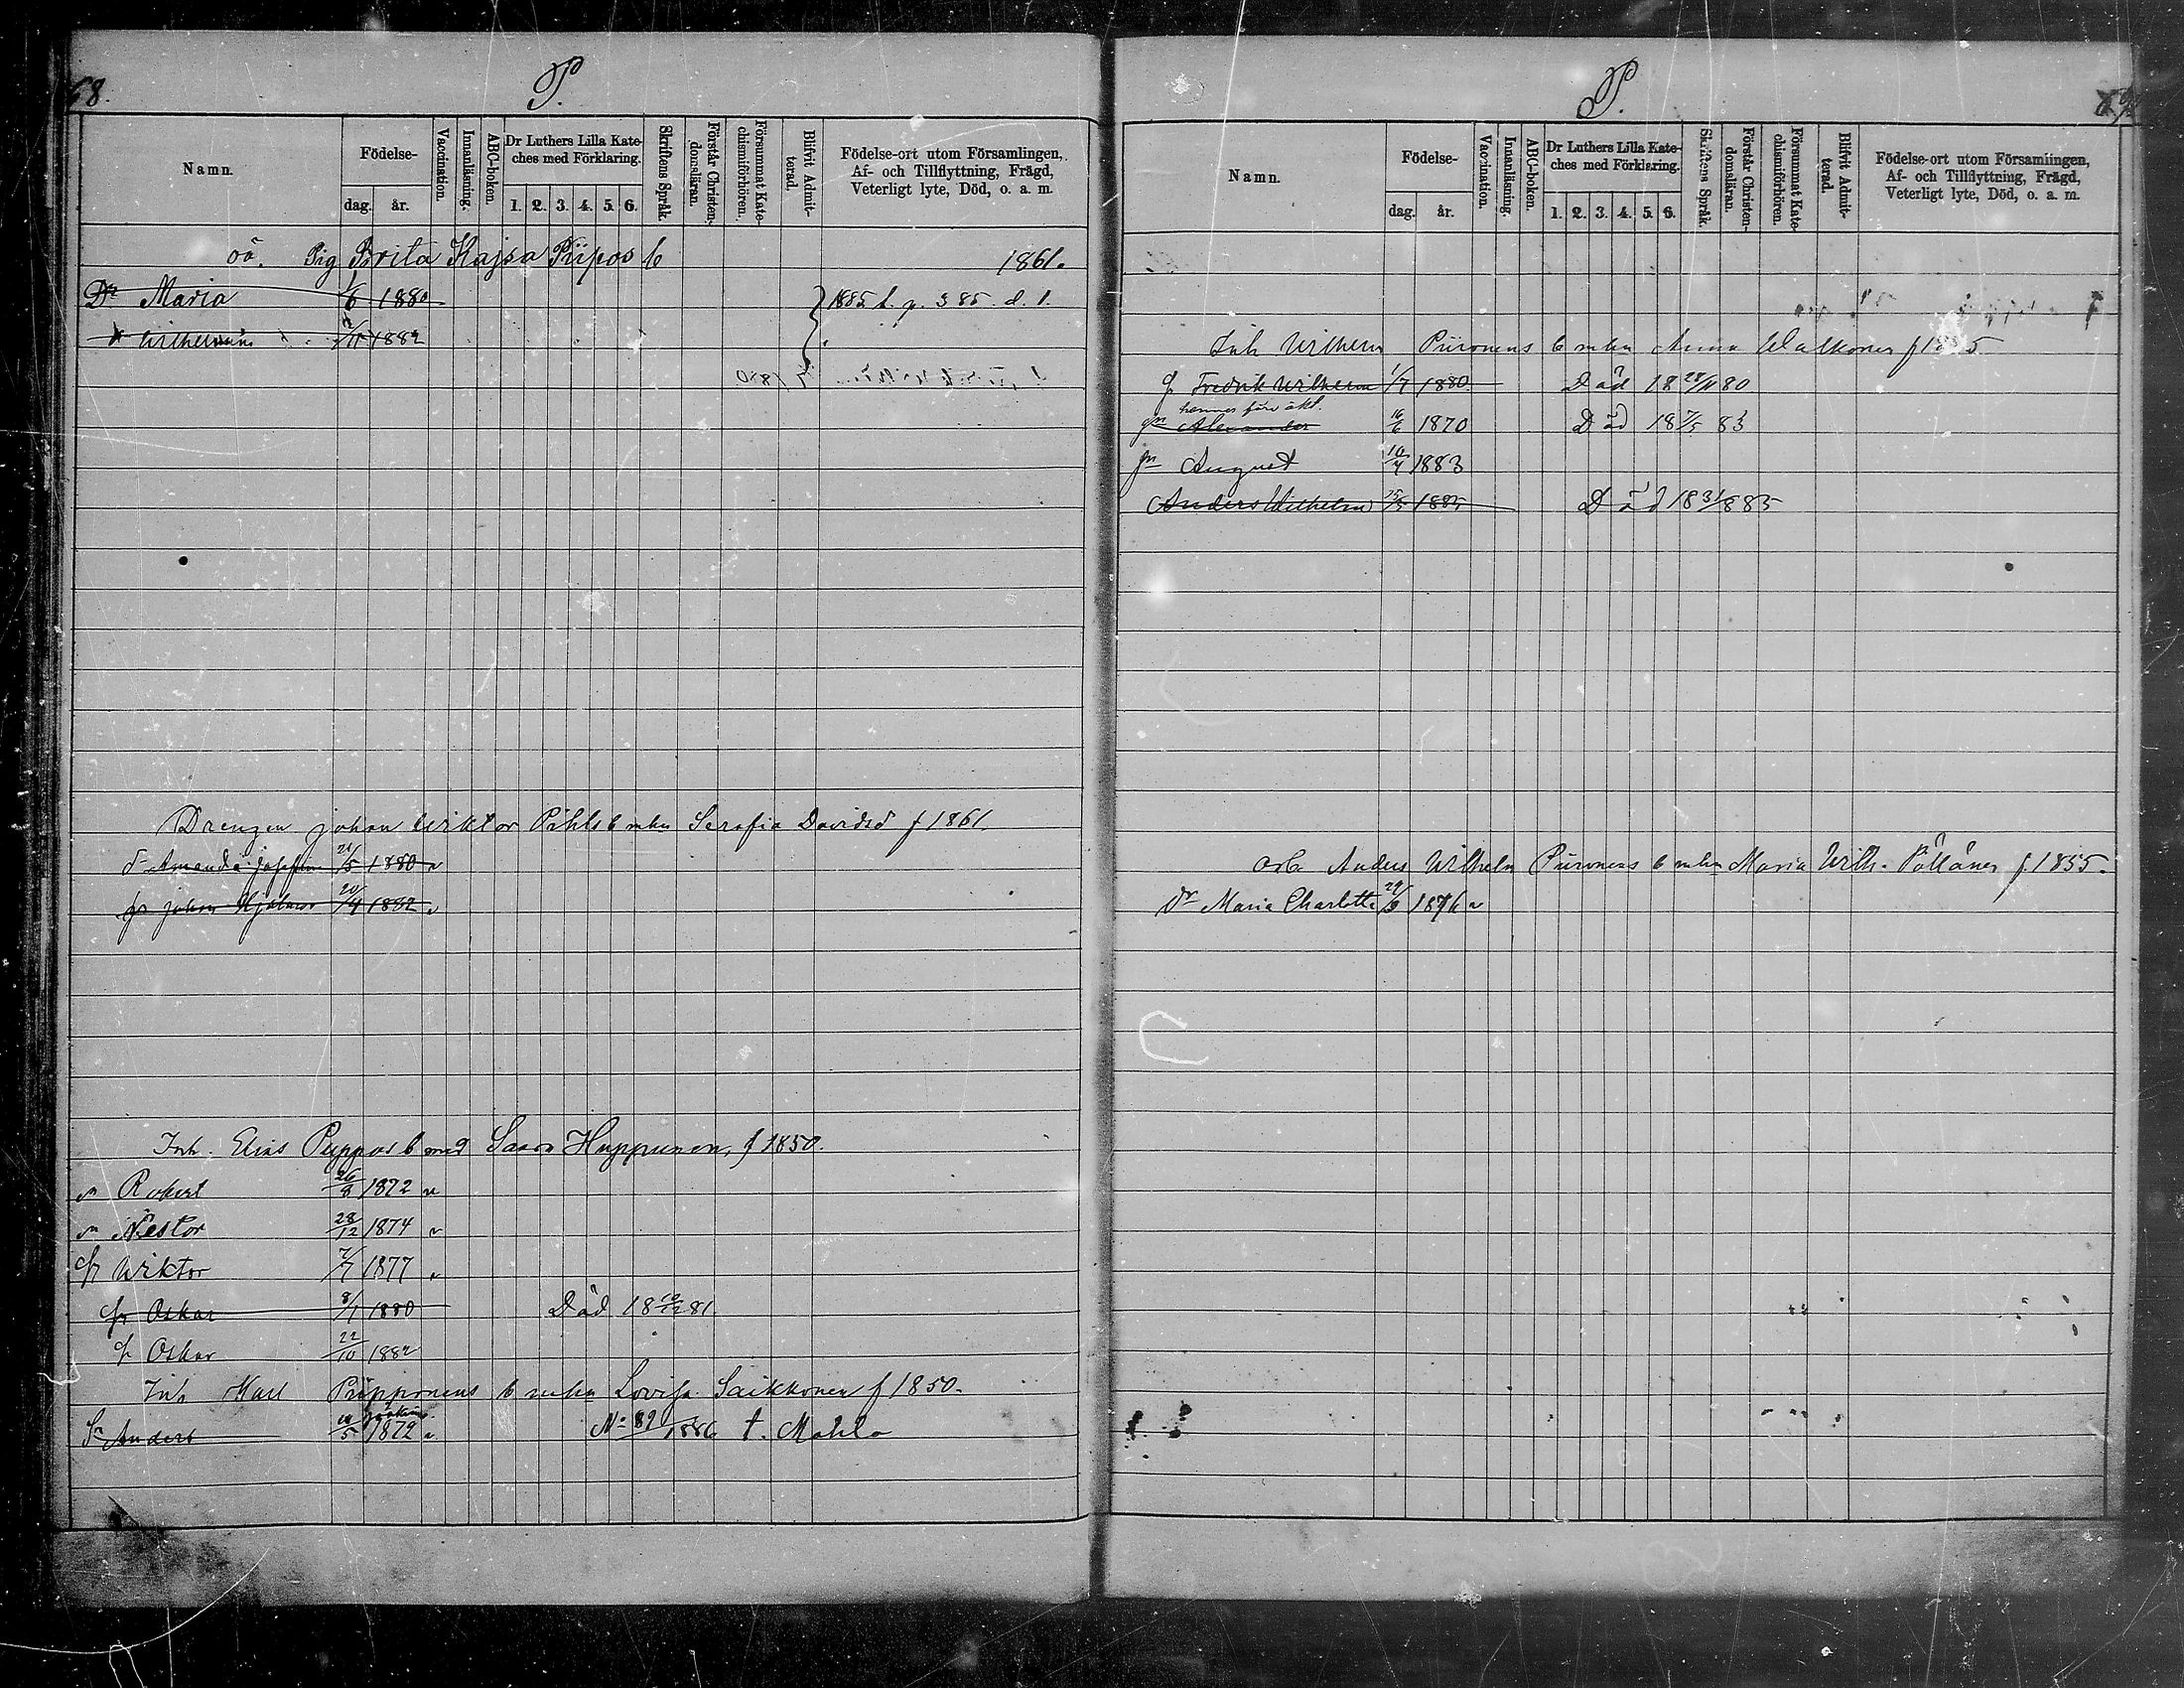 68.
P.
Namn.
Födelse-
dag.
år.
Vaccination.
Innanläsning.
ABC-boken.
Dr Luthers Lilla Kate-
ches med Förklaring.
1. 2. 3. 4. 5. 6.
Skriftens Språk.
Förstår Christen-
domsläran.
Försummat Kate-
chismiförhören.
Blifvit Admit-
terad.
Födelse-ort utom Församlingen,
Af- och Tillflyttning, Frägd,
Veterligt lyte, Död, o. a. m.
oä. Pig Brita Kajsa Piipos b 1861.
Dr Maria 1/6 1880 1885 l. p. 385. d. 1.
Wilhelmina /11 1882
Drengen Johan Wiktor Pihls b m hu Serafia Davidsd f 1861.
d Amanda Josefina 21/5 1880 v
fr Johan Hjalmar 20/4 1882 v
Inh. Elias Puppos b med Saara Huppunen, f 1850.
n Robert 26/8 1872 v
n Nestor 28/12 1874 v
fr Wiktor 7/7 1877 v
fr Oskar 8/1 1880 Död 18 10/12 81.
fr Oskar 22/10 1882
Inh Karl Pröpponens b m hu Lovisa Saikkonen f 1850.
Sr Anders /5 1872 v No 89/1886 t. Mohla
P.
69
Namn.
Födelse-
dag.
år.
Vaccination.
Innanläsning.
ABC-boken.
Dr Luthers Lilla Kate-
ches med Förklaring.
1. 2. 3. 4. 5. 6.
Skriftens Språk.
Förstår Christen-
domsläran.
Försummat Kate-
chismiförhören.
Blifvit Admit-
terad.
Födelse-ort utom Församlingen,
Af- och Tillflyttning, Frägd,
Veterligt lyte, Död, o. a. m.
Inh Wilhelm Piironens b m hu Anna Walkonen f 18 5
f Fredrik Wilhelm 1/7 1880 Död 18 28/11 80
hennes förr äkt.
gn Alexander 16/6 1870 Död 18 7/5 83
fn August 10/7 1883
Anders Wilhelm 15/5 1885 Död 18 31/8 85
Anders Wilhelm Piironens b m hu Maria Wilh. Pöllänen f. 1855.
Dr Maria Charlotta 29/3 1876 v